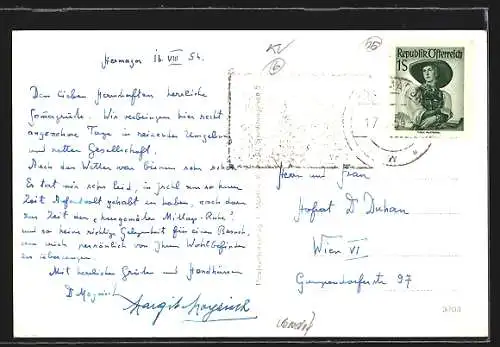 Hermagor 16. VIII 54.
Den lieben Herrschaften herzliche
Sommergrüsse. Wir verbringen hier recht
angenehme Tage in reizender Umgebung
und netter Gesellschaft.
Auch das Wetter war bisnun sehr schön.
Es tat mir sehr leid, in Ischl nur so kurze
Zeit Aufenthalt gehabt zu haben, noch dazu
zur Zeit der "Mittags-Ruhe"
und so keine richtige Gelegenheit für einen Besuch,
um mich persönlich von Ihrem Wohlbefinden
zu überzeugen.
Mit herzlichen Grüßen und Handküssen
Margit
REPUBLIK ÖSTERREICH
1S
Herrn und Frau
Hofrat Dr Duhan
Wien VI
Gumpendorferstr 97
3703